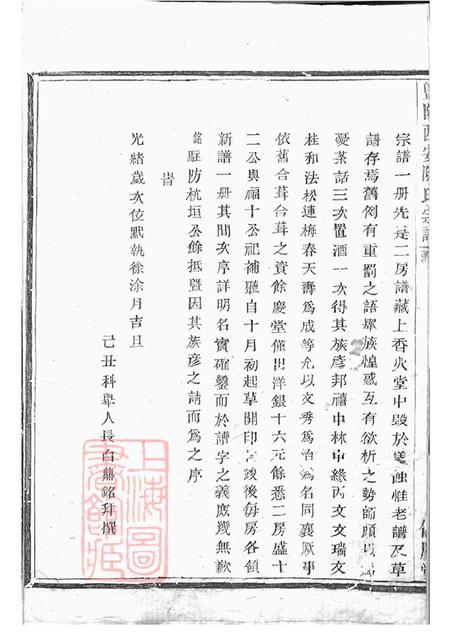 暨陽西安陳氏宗譜
宗譜一册先是二房譜藏上香火堂中毀於蟲蝕惟老譜及草
譜存焉舊例有重罰之語聚族惶惑互有欲析之勢師頤以
憂茶話三次置酒一次得其族彥邦禧中林中緣丙文文瑞文
桂和法松連梅春天壽爲成等允以文秀爲首爲名同襄厥事
依舊合葺合葺之資餘慶堂僅出洋銀十六元餘悉二房盛十
二公與福十公祀補雖自十月初起草開印告竣後每房各領
新譜一册其間次序詳明名實確鑿而於譜字之義庶幾無歉
旹
銘駐防杭垣公餘抵暨因其族彥之請而爲之序
光緒歲次位默執徐涂月吉旦
己丑科舉人長白鼎銘拜撰
上海圖
書館藏